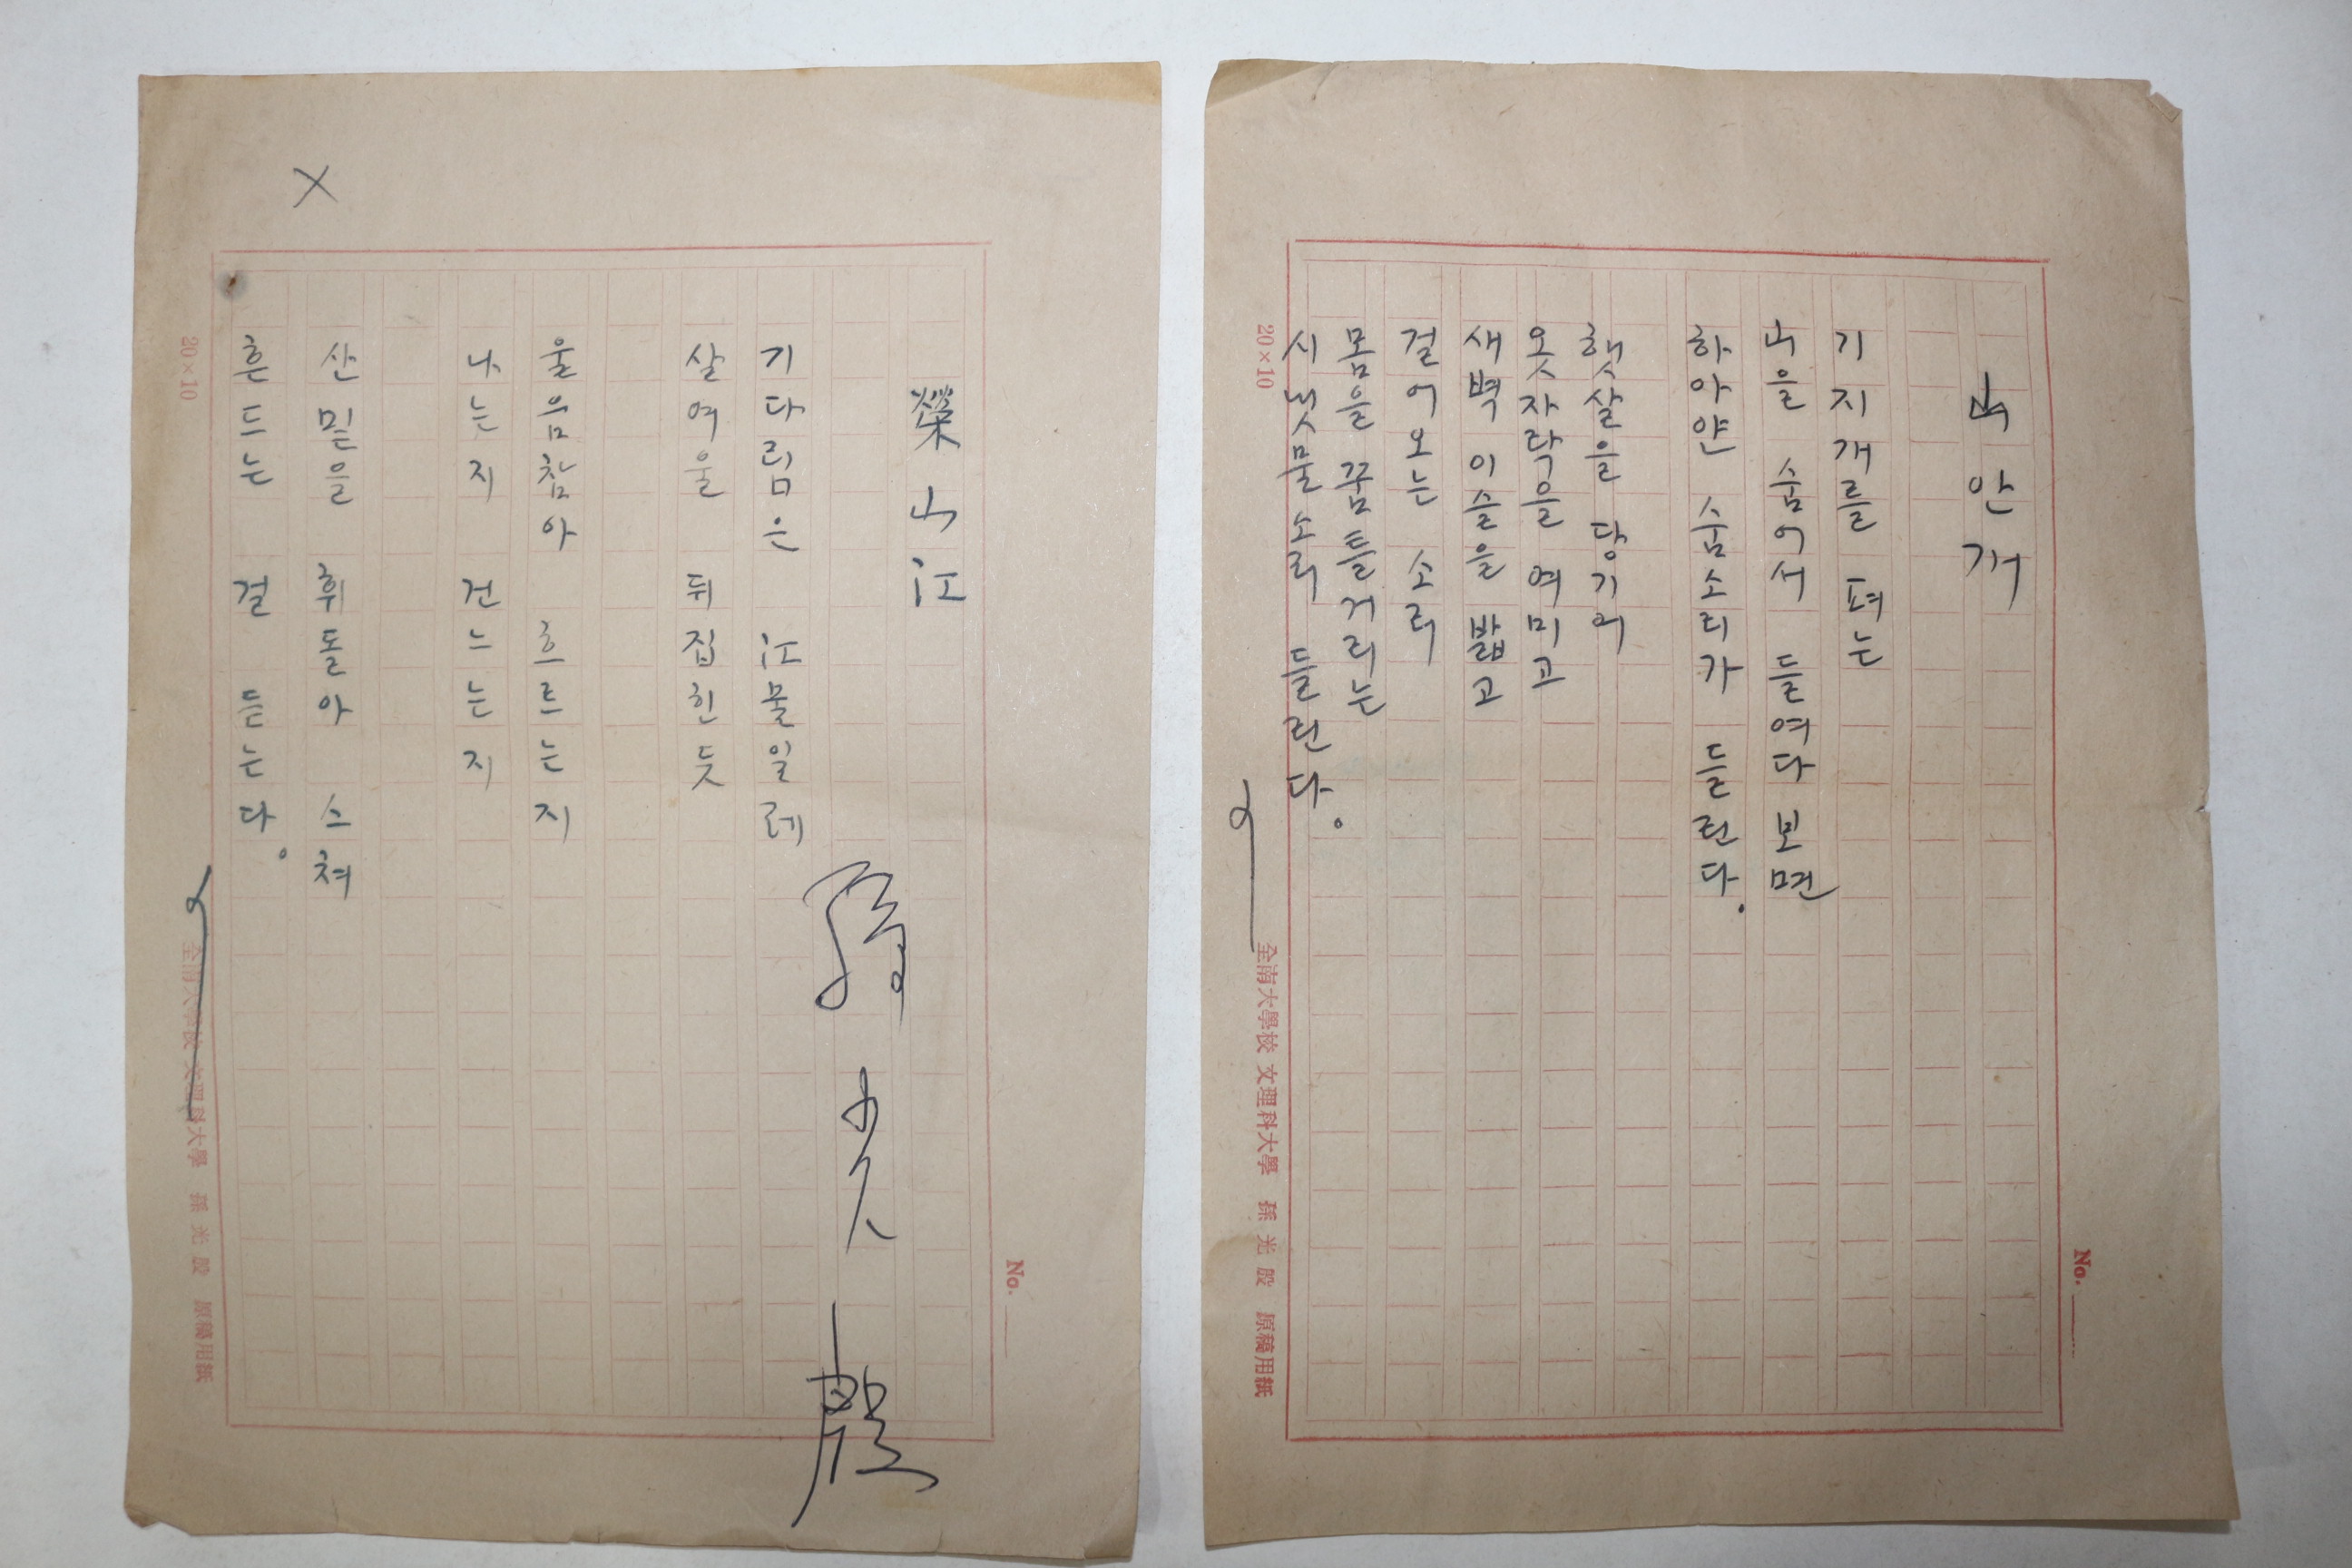 山 안개
기지개를 펴는
山을 숨어서 들여다 보면
하아얀 숨소리가 들린다.
햇살을 당기어
옷자락을 여미고
새벽 이슬을 밟고
걸어오는 소리
몸을 꿈틀거리는
시냇물소리 들린다.
20×10
全南大學校 文理科大學 孫光殷 原稿用紙
No.
榮山江
孫光殷
기다림은 江물일레
살여울 뒤집힌듯
울음참아 흐르는지
나는지 건느는지
산밑을 휘돌아 스쳐
흔드는 걸 듣는다.
×
20×10
全南大學校 文理科大學 孫光殷 原稿用紙
No.